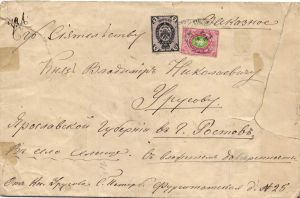 Заказное
Его Сіятельству
Князю Владиміру Николаевичу
Урусову
Ярославской Губерніи въ г. Ростовъ
Въ село
Съ вложеніемъ доверенности
Отъ Кн. Урусова С. Петерб. Фурштатская д. № 25